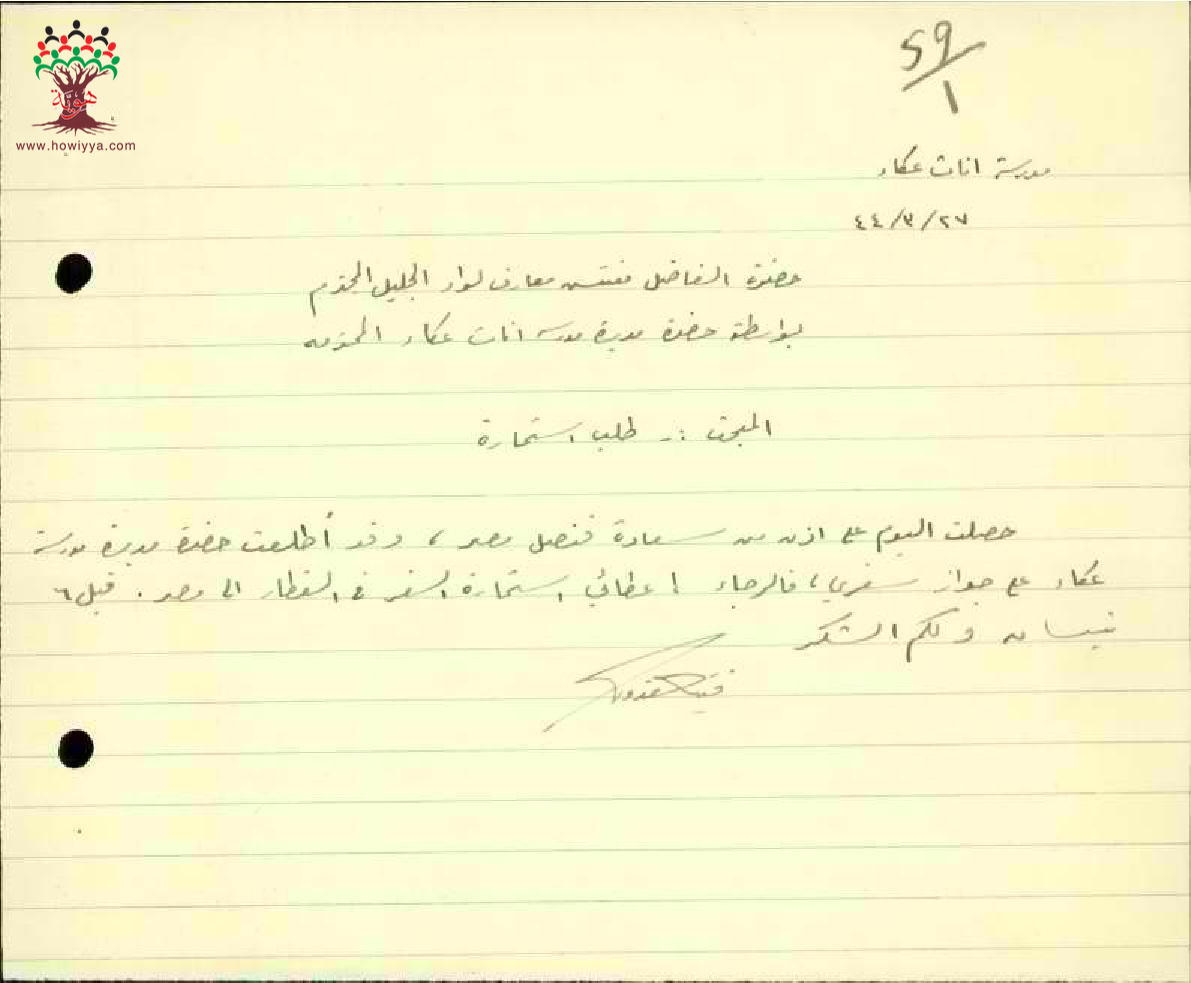 هوية
www.howiyya.com
59/1
مدرسة اناث عكاء
٢٧/٣/٤٤
حضرة الفاضل مفتش معارف لواء الجليل المحترم
بواسطة حضرة مديرة مدرسة اناث عكاء المحترمه
المبحث :- طلب استمارة
حصلت اليوم على اذن من سعادة قنصل مصر، وقد أطلعت حضرة مديرة مدرسة
عكاء على جواز سفري، فالرجاء اعطائي استمارة السفر في القطار الى مصر. قبل ٦
نيسان ولكم الشكر